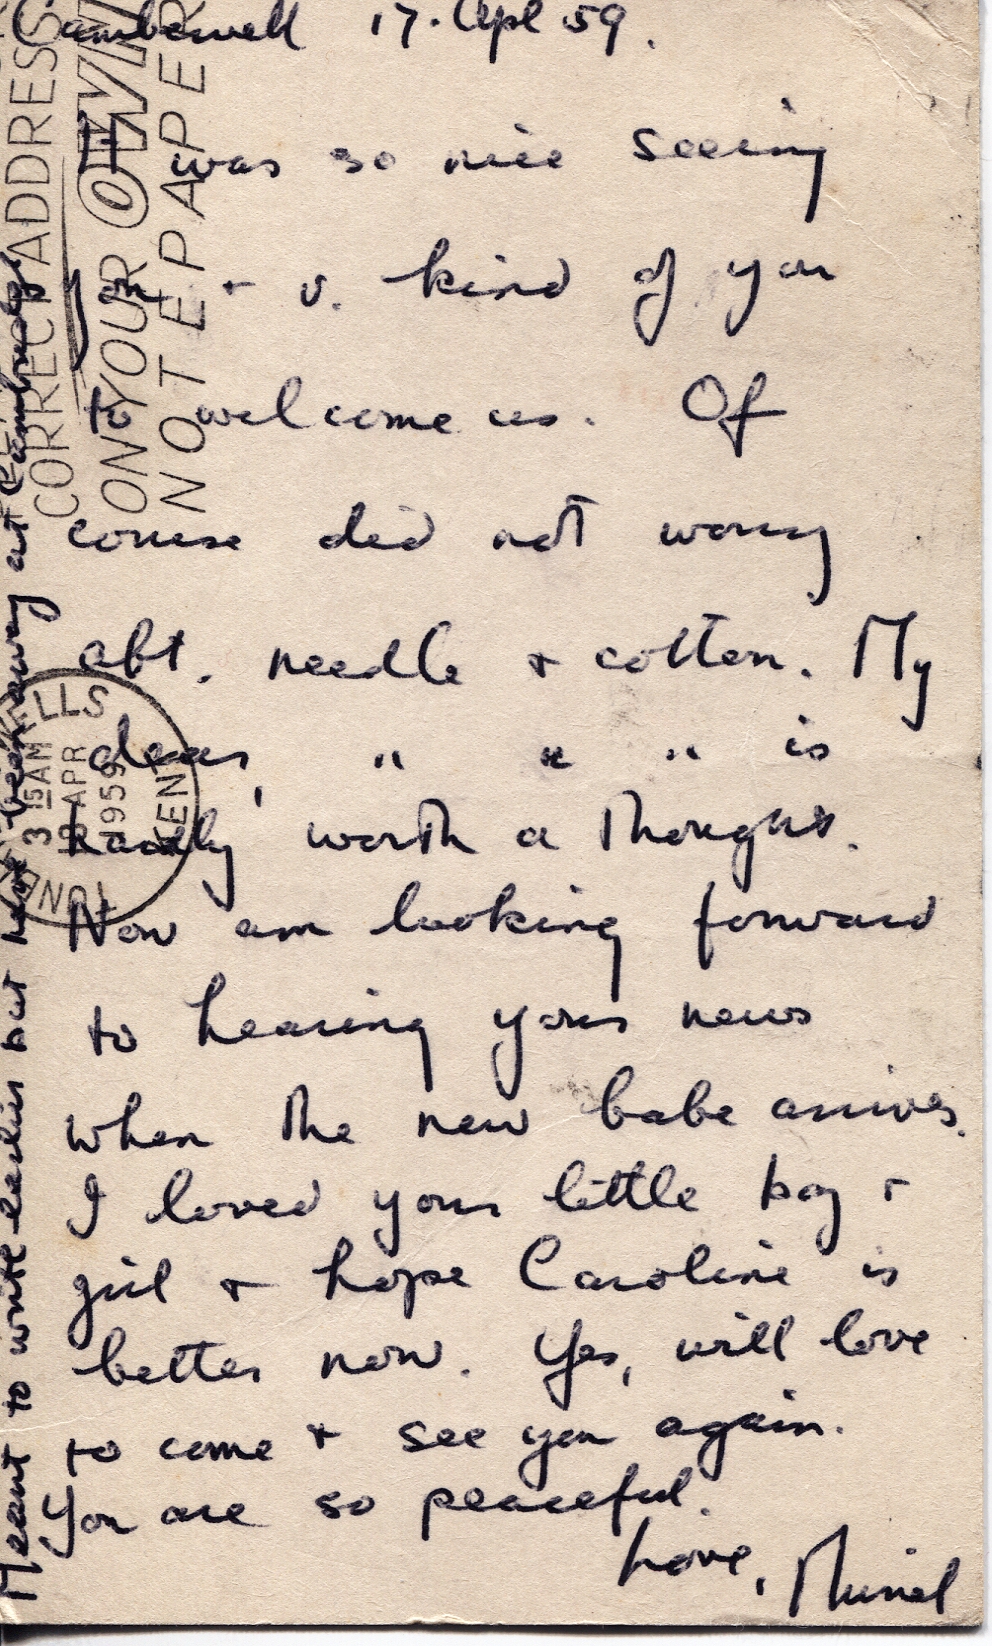 Camberwell 17. Apl 59.
It was so nice seeing
you + v. kind of you
to welcome us. Of
course did not worry
abt. needle + cotton. My
dear, " " " is
hardly worth a thought.
Now am looking forward
to hearing your news
when the new babe arrives.
I loved your little boy +
girl + hope Caroline is
better now. Yes, will love
to come + see you again.
You are so peaceful.
Love, Muriel
Meant to write earlier but have been away at Cambridge
CORRECT ADDRESS
ON YOUR OWN
NOTEPAPER
WELLS
3 15 AM
APR
1959
KENT